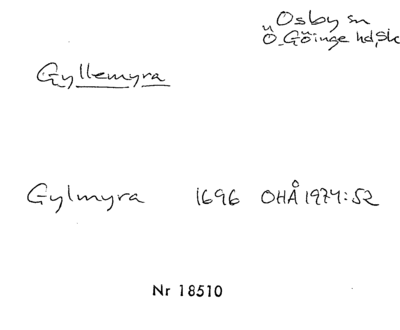 Osby sn
Ö Göinge hd, Sk
Gyllemyra
Gylmyra 1696 OHÅ 1974:52
Nr 18510